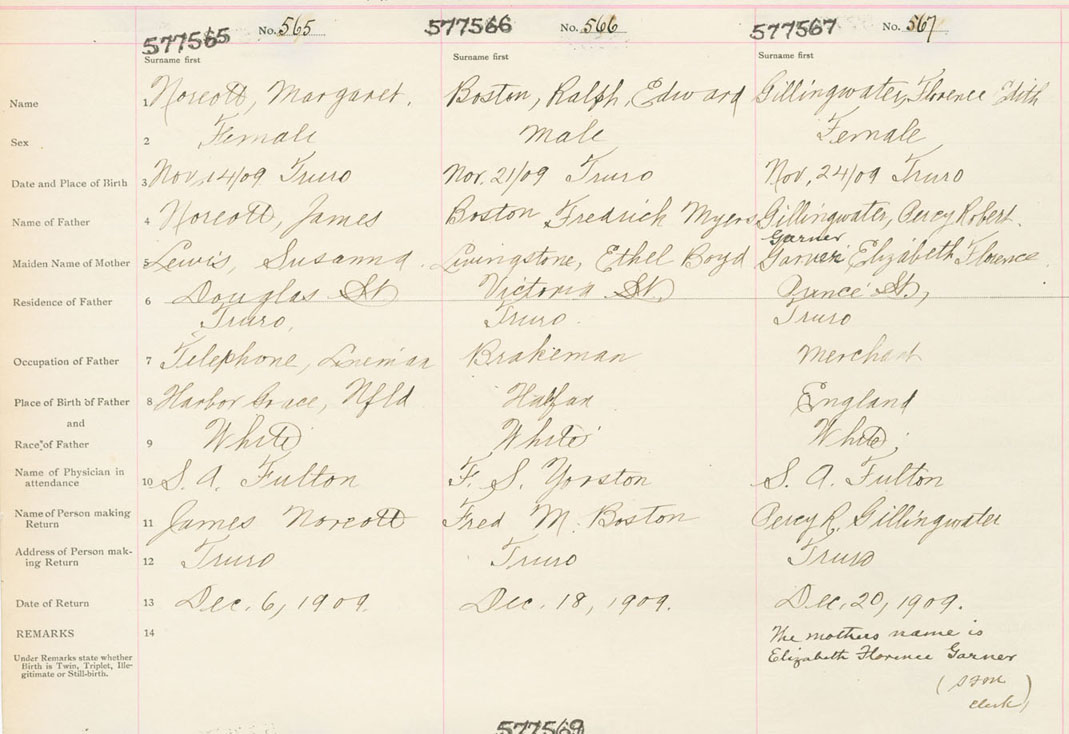 577565 No. 565 577566 No. 566 577567 No. 567
Surname first Surname first Surname first
Name 1 Norcott, Margaret. Boston, Ralph, Edward Gillingwater, Florence Edith
Sex 2 Female Male Female
Date and Place of Birth 3 Nov, 14/09 Truro Nov. 21/09 Truro Nov, 24/09 Truro
Name of Father 4 Norcott, James Boston Fredrick Myers Gillingwater, Percy Robert
Garner
Maiden Name of Mother 5 Lewis, Susanna. Livingstone, Ethel Boyd Garvin Elizabeth Florence.
Residence of Father 6 Douglas St. Victoria St. Prince St.,
Truro, Truro. Truro
Occupation of Father 7 Telephone, Lineman Brakeman Merchant
Place of Birth of Father 8 Harbor Grace, Nfld Halifax England
and
Race of Father 9 White White White
Name of Physician in attendance 10 S. A. Fulton F. S. Yorston S. A. Fulton
Name of Person making Return 11 James Norcott Fred M. Boston Percy R. Gillingwater
Address of Person making Return 12 Truro Truro Truro
Date of Return 13 Dec. 6, 1909. Dec. 18, 1909. Dec. 20, 1909.
REMARKS 14 The mothers name is
Under Remarks state whether Elizabeth Florence Garner
Birth is Twin, Triplet, Ille-
gitimate or Still-birth.
clerk)
577569